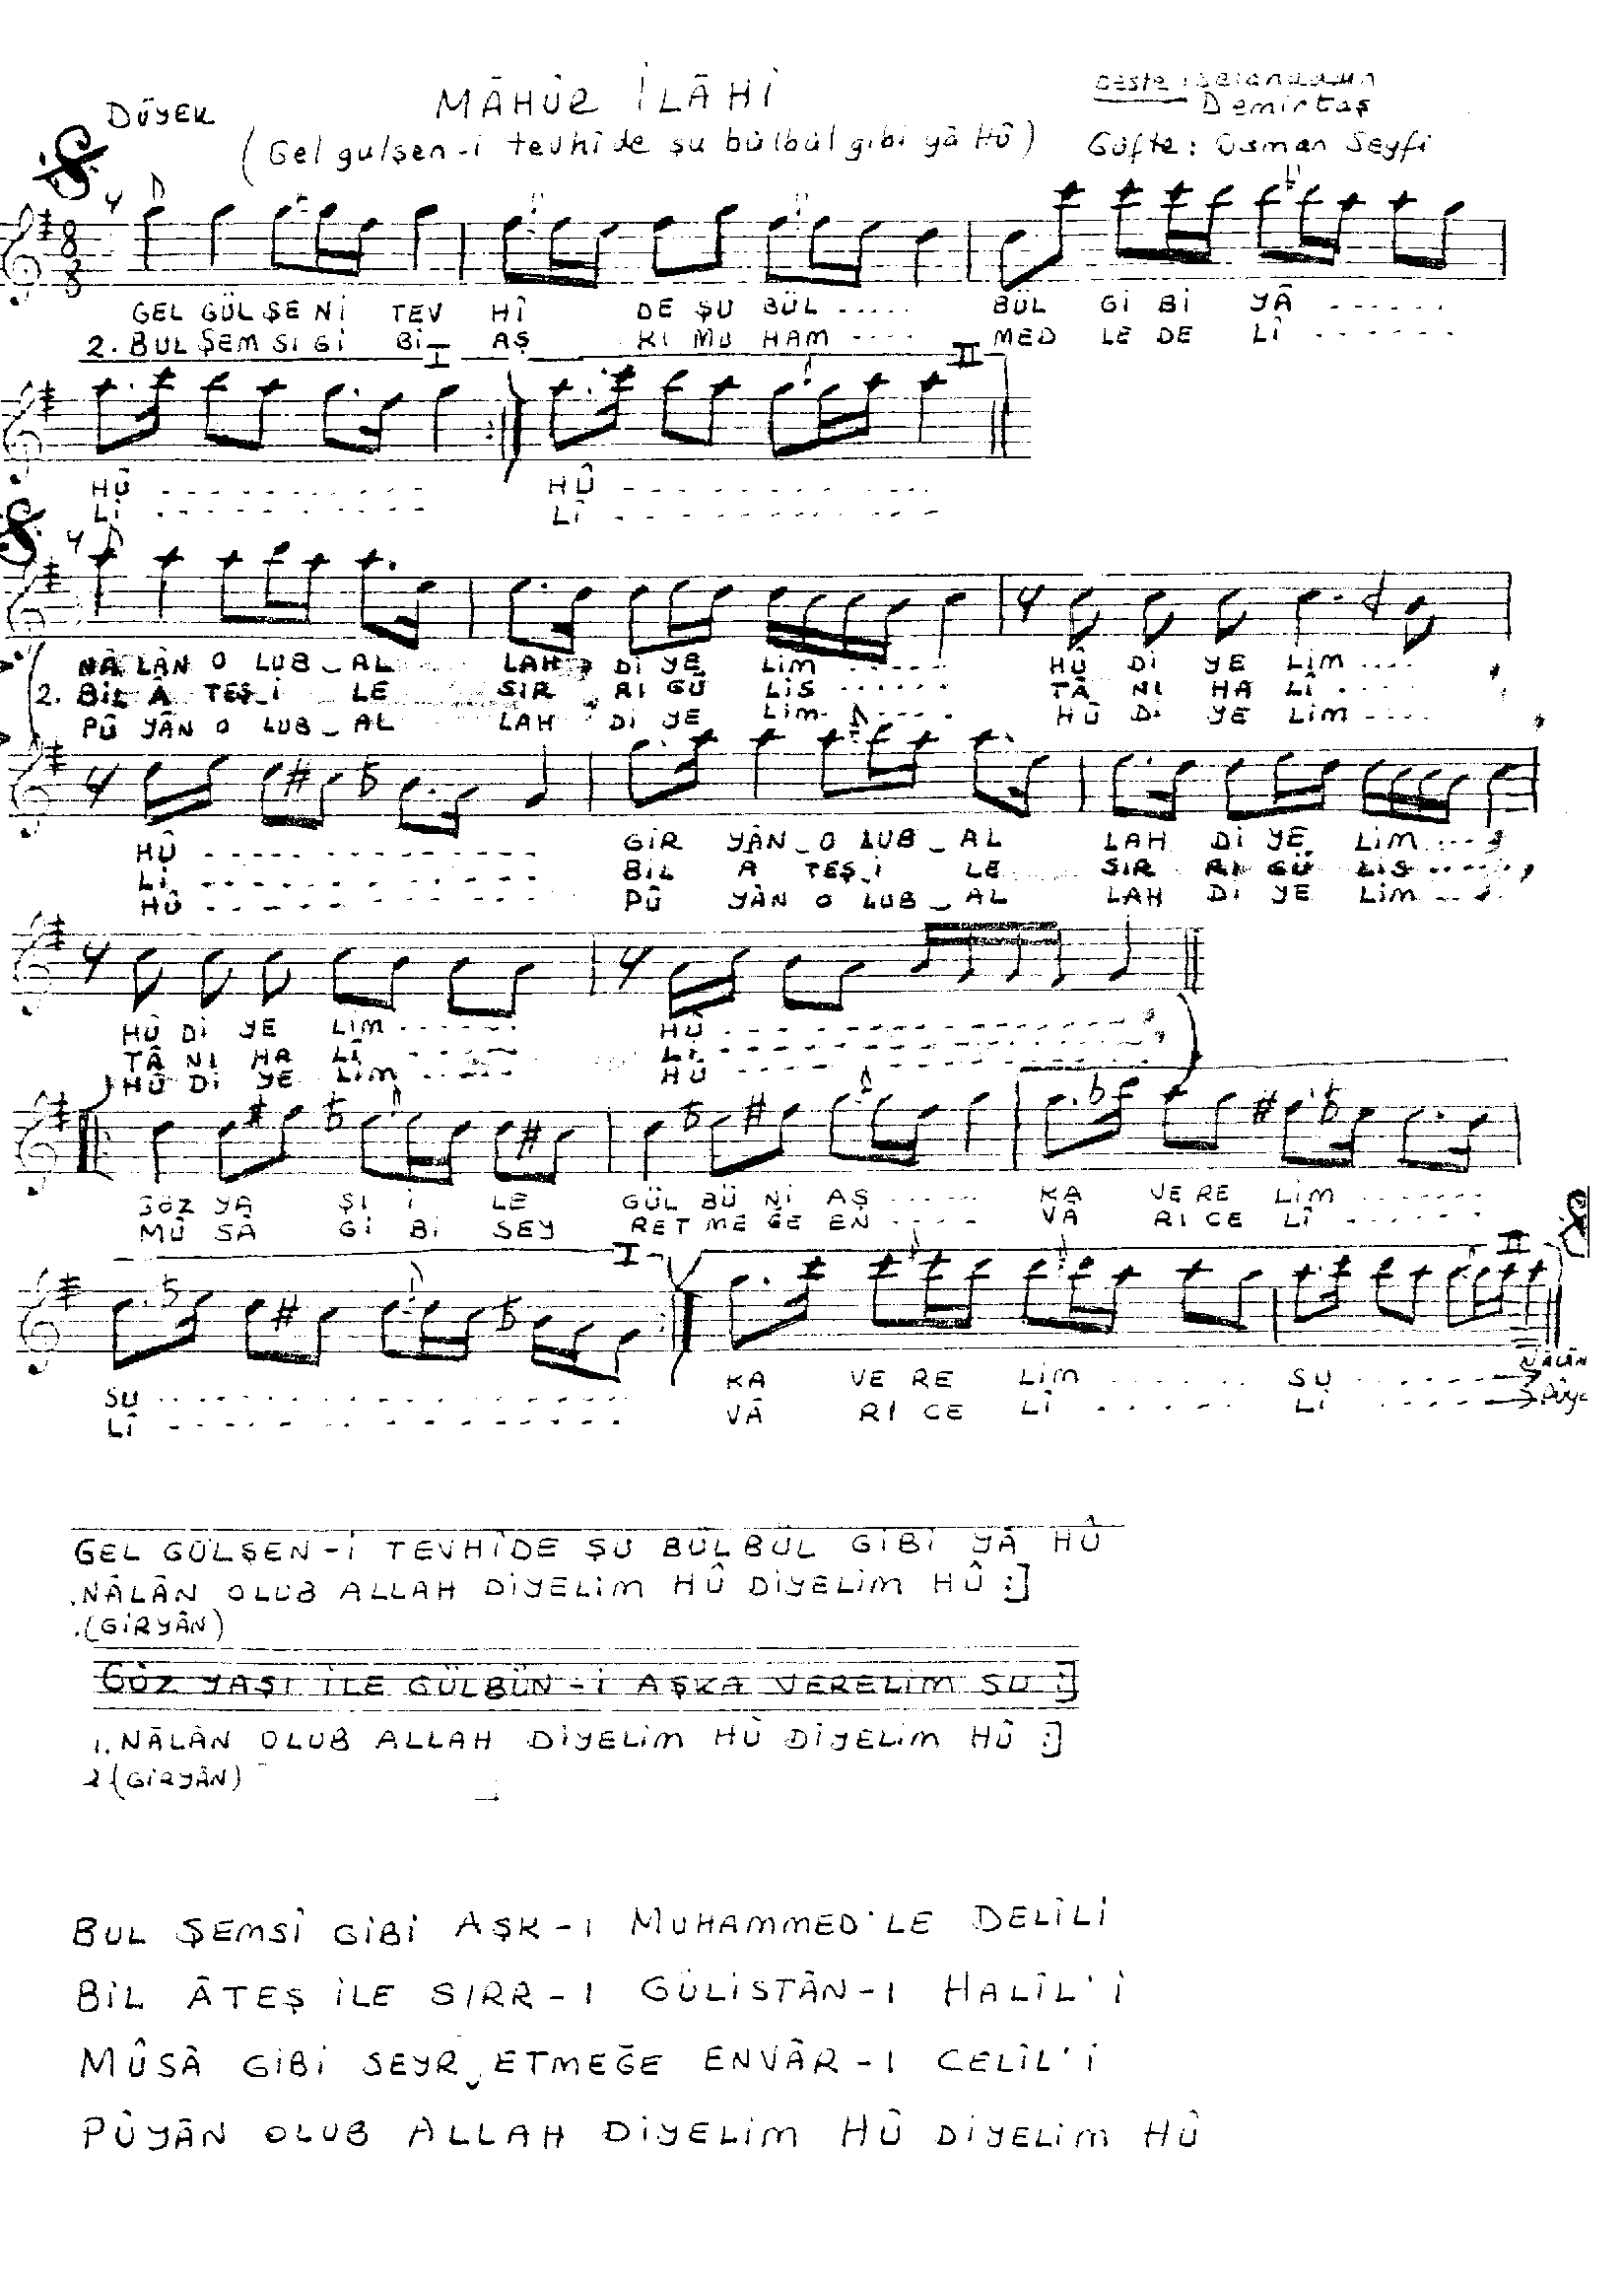 DÜYEK
MÂHÛR İLÂHİ
Beste : Selahaddin
Demirtaş
(Gel gülşen-i tevhîde şu bülbül gibi yâ Hû)
Güfte : Osman Seyfi
8
8
GEL GÜL ŞE Nİ TEV HÎ DE ŞU BÜL ..... BÜL Gİ Bİ YÂ ......
2. BUL ŞEM SI Gİ Bİ AŞ KI MU HAM .... MED LE DE LÎ ......
I II
HÛ ........... HÛ ...........
LÎ ........... LÎ ...........
NÂ LÂN O LUB_AL LAH Dİ YE LİM ...... HÛ Dİ YE LİM ....
2. BİL Â TEŞ_İ LE SIR RI GÜ LİS ...... TÂ NI HA LÎ ....
PÛ YÂN O LUB_AL LAH Dİ YE LİM ..... HÛ Dİ YE LİM ....
HÛ ........... GİR YÂN_O LUB_AL LAH Dİ YE LİM ....
LÎ ........... BİL A TEŞ_İ LE SIR RI GÜ LİS ....
HÛ ........... PÛ YÂN O LUB_AL LAH Dİ YE LİM ....
HÛ Dİ YE LİM ...... HÛ ...........
TÂ NI HA LÎ ...... LÎ ...........
HÛ Dİ YE LİM ...... HÛ ...........
GÖZ YA ŞI İ LE GÜL BÜ Nİ AŞ ..... KA VE RE LİM ......
MÛ SÂ Gİ Bİ SEY RET ME ĞE EN ..... VÂ RI CE LÎ ......
I II
SU ............ KA VE RE LİM ...... SU ...... NÂLÂN
LÎ ............ VÂ RI CE LÎ ...... LÎ ...... Pûyâ
GEL GÜLŞEN-İ TEVHÎDE ŞU BÜLBÜL GİBİ YÂ HÛ
NÂLÂN OLUB ALLAH DİYELİM HÛ DİYELİM HÛ :]
(GİRYÂN)
GÖZ YAŞI İLE GÜLBÜN-İ AŞKA VERELİM SU :]
1. NÂLÂN OLUB ALLAH DİYELİM HÛ DİYELİM HÛ :]
2 (GİRYÂN)
BUL ŞEMSÎ GİBİ AŞK-I MUHAMMED'LE DELÎLİ
BİL ÂTEŞ İLE SIRR-I GÜLİSTÂN-I HALÎL'İ
MÛSÂ GİBİ SEYR_ETMEĞE ENVÂR-I CELÎL'İ
PÛYÂN OLUB ALLAH DİYELİM HÛ DİYELİM HÛ